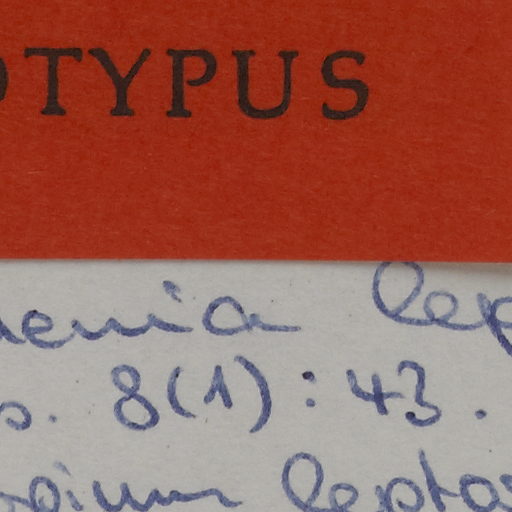 OTYPUS
denia lep
s. 8(1): 43.
gium lepto